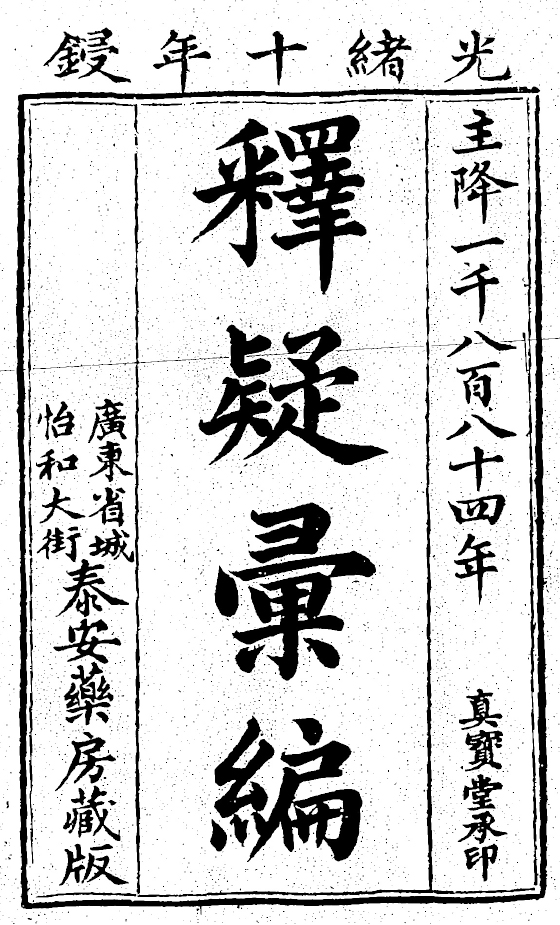 光緒十年鋟
主降一千八百八十四年
真寶堂承印
釋疑彙編
廣東省城
怡和大街
泰安藥房藏版